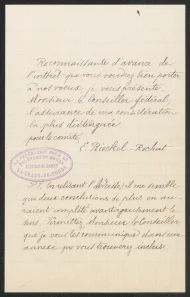 Reconnaissante d'avance de
l'intérêt que vous voudrez bien porter
à nos vœux je vous présente,
Monsieur le Conseiller fédéral,
l'assurance de ma considération
la plus distinguée
pour le comité,
C. Rückel-Rochat
P.S. En relisant l'adresse, il me semble
que deux conclusions de plus en au-
raient complété avantageusement le
sens. Permettez, Monsieur le Conseiller
que je vous les communique dans une
annexe que vous trouverez incluse.